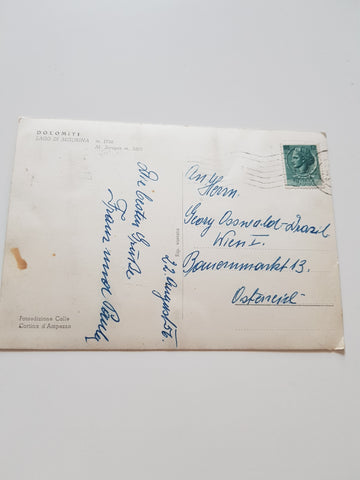 DOLOMITI
LAGO DI MISURINA m. 1756
M. Sorapis m. 3205
Die besten Grüße
Franz und Paula
22. August 56.
An
Herrn
Georg Osswald-Drazil
Wien I.
Bauernmarkt 13.
Österreich
Rip. vietata
Fotoedizione Calle
Cortina d'Ampezzo